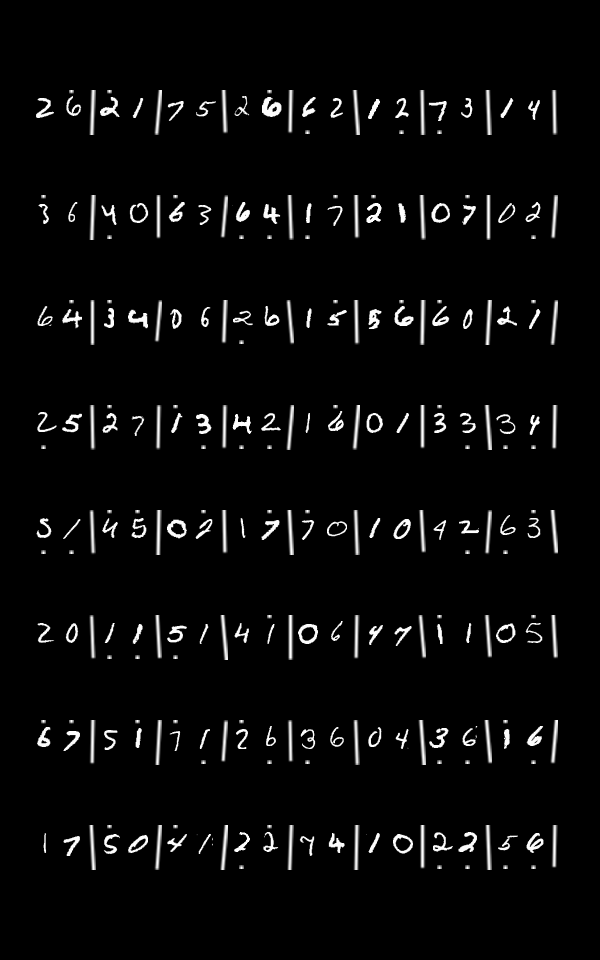 2 6 | 2 1 | 7 5 | 2 6 | 6 2 | 1 2 | 7 3 | 1 4 |
3 6 | 4 0 | 6 3 | 6 4 | 1 7 | 2 1 | 0 7 | 0 2 |
6 4 | 3 4 | 0 6 | 2 6 | 1 5 | 5 6 | 6 0 | 2 1 |
2 5 | 2 7 | 1 3 | 4 2 | 1 6 | 0 1 | 3 3 | 3 4 |
5 1 | 4 5 | 0 2 | 1 7 | 7 0 | 1 0 | 4 2 | 6 3 |
2 0 | 1 1 | 5 1 | 4 1 | 0 6 | 4 7 | 1 1 | 0 5 |
6 7 | 5 1 | 7 1 | 2 6 | 3 6 | 0 4 | 3 6 | 1 6 |
1 7 | 5 0 | 4 1 | 2 2 | 7 4 | 1 0 | 2 2 | 5 6 |